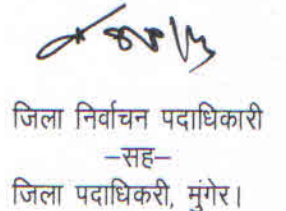 जिला निर्वाचन पदाधिकारी
–सह–
जिला पदाधिकरी, मुंगेर।